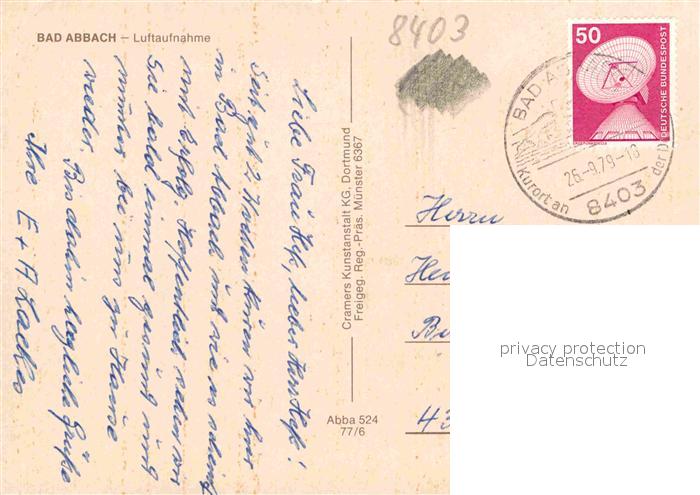 BAD ABBACH – Luftaufnahme
Liebe Frau Heß, lieber Herr Heß!
Seit gut 2 Wochen kuren wir hier
in Bad Abbach und wie es scheint
mit Erfolg. Hoffentlich sehen wir
Sie bald einmal gesund und
munter bei uns zu Hause
wieder. Bis dahin herzliche Grüße
Ihre E + A
Cramers Kunstanstalt KG, Dortmund
Freigeg. Reg.-Präs. Münster 6367
Abba 524
77/6
8403
50
DEUTSCHE BUNDESPOST
BAD AB
26.-9.79-16
8403
Kurort an der D
Herrn
He
43
privacy protection
Datenschutz